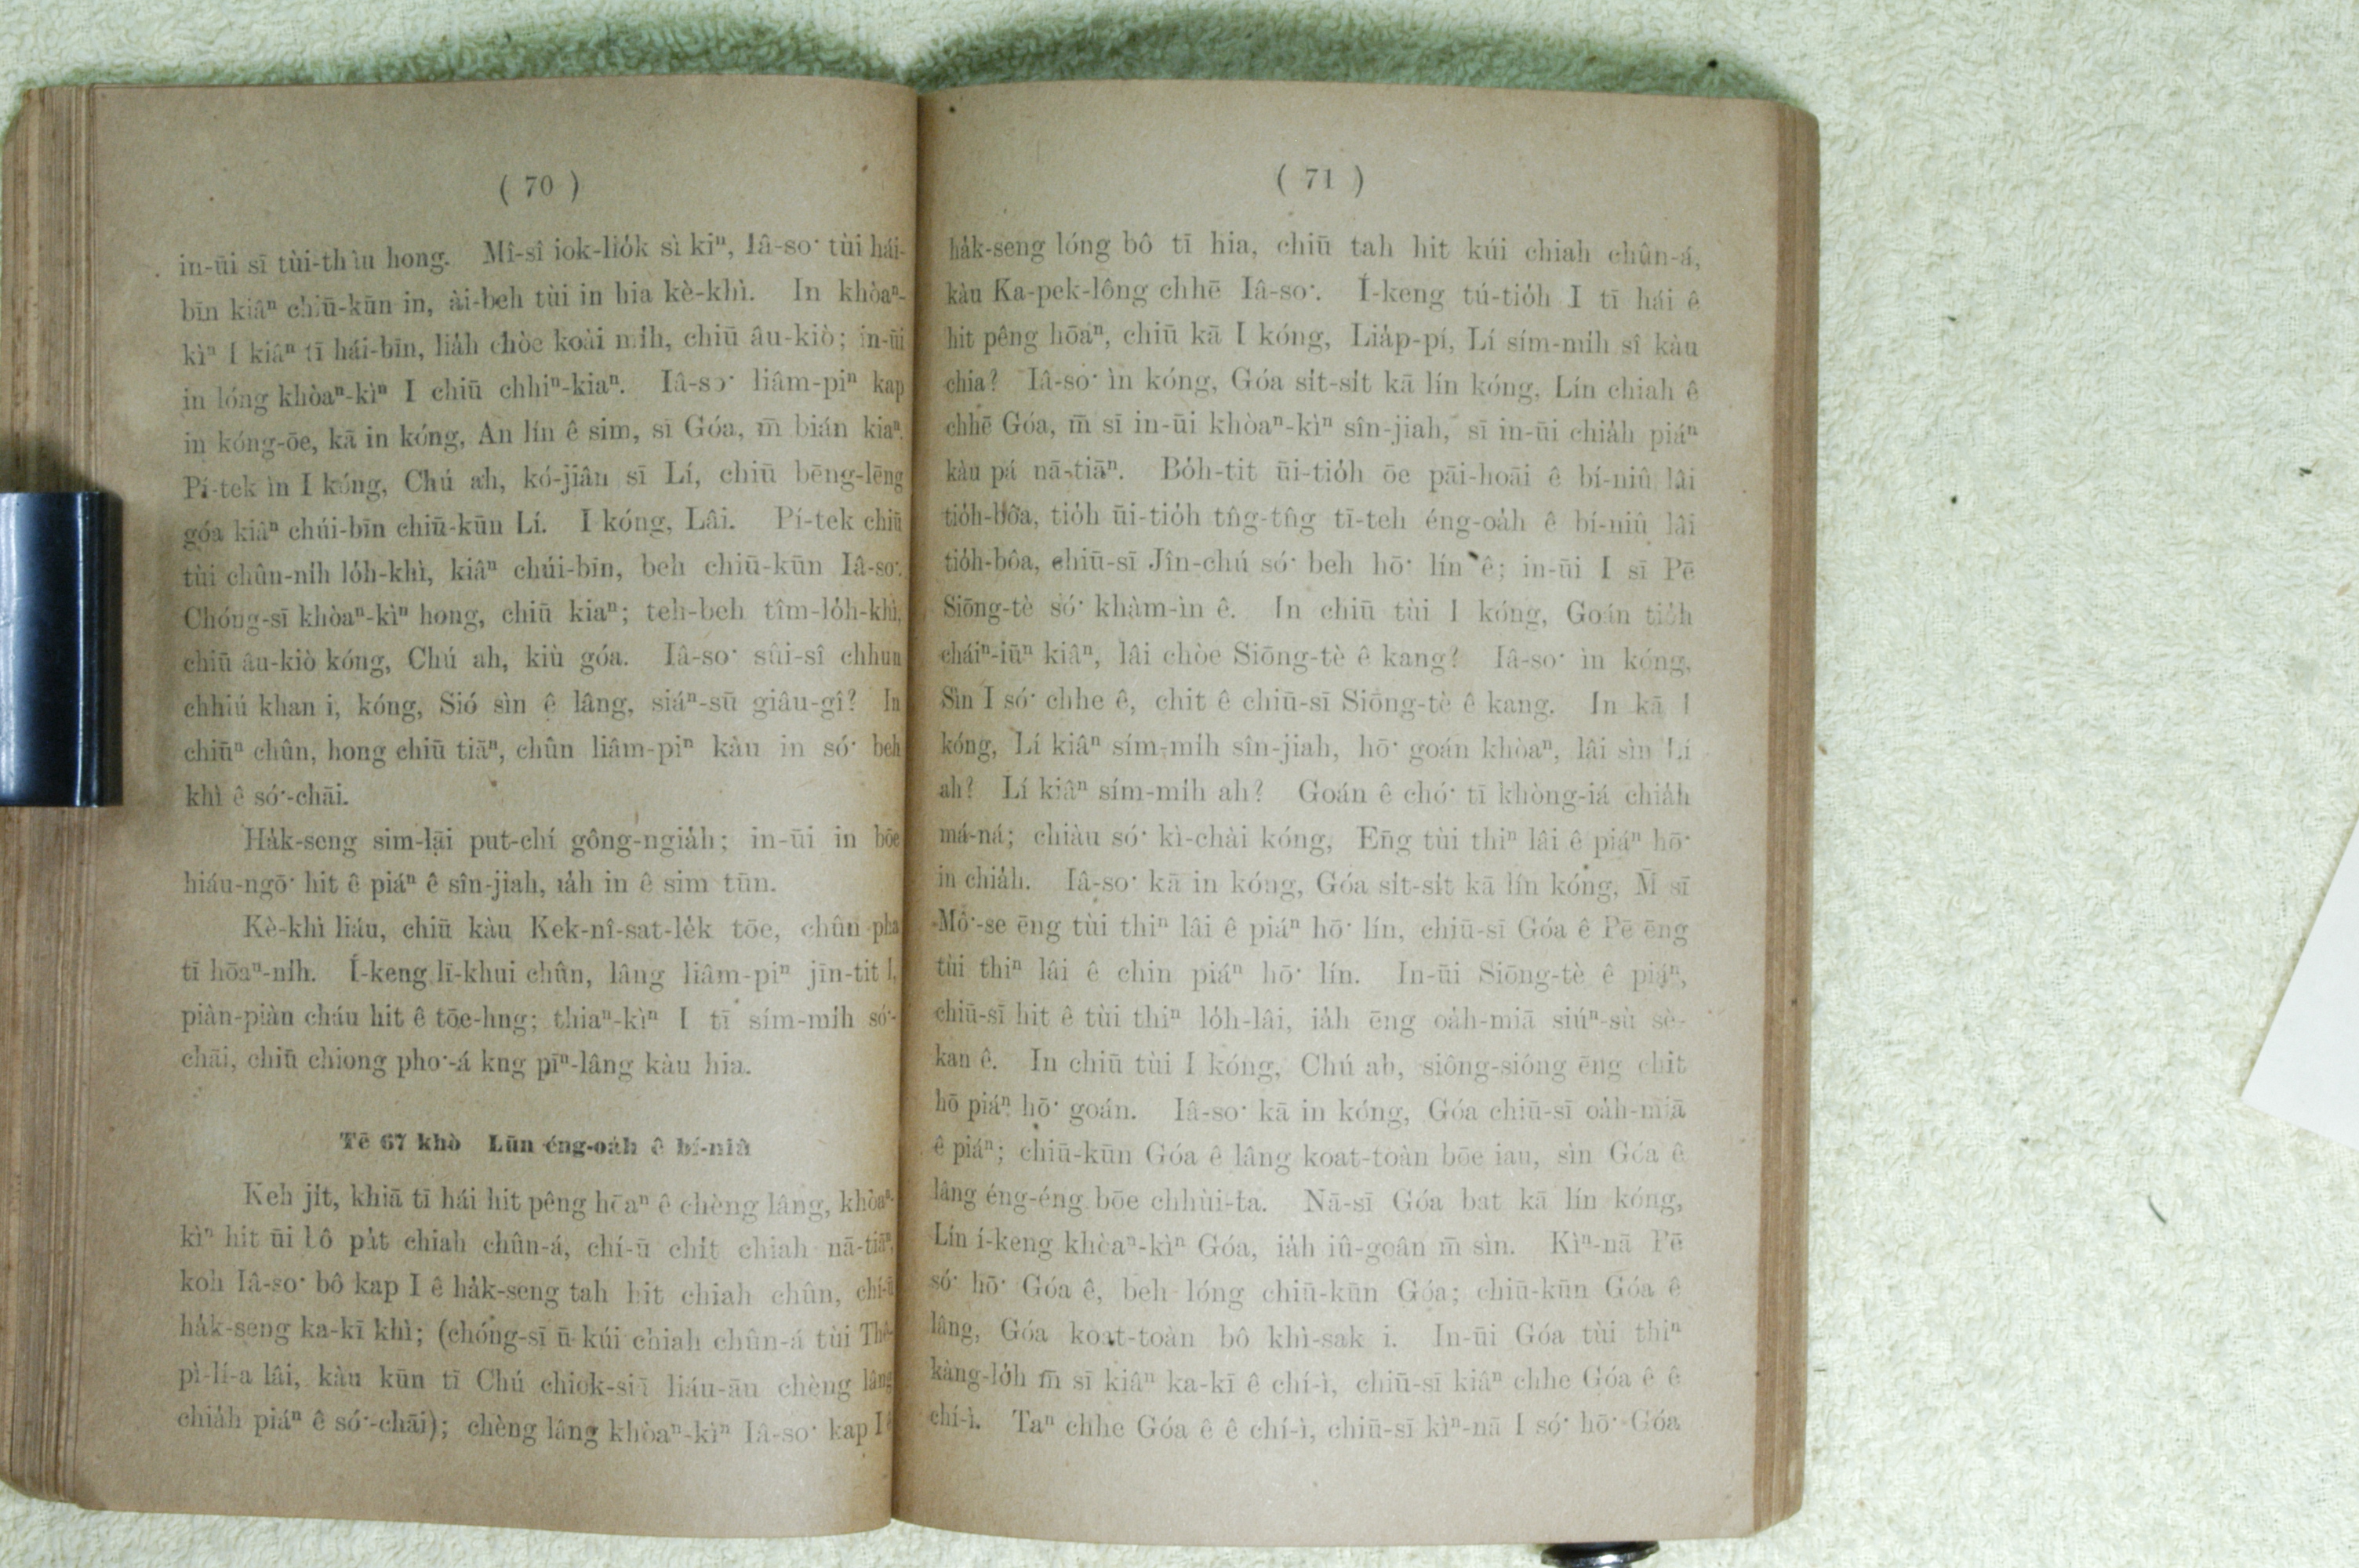 ( 70 )
in-ūi sī tùi-thìu hong. Mî-sî iok-lio̍k sì kiⁿ, Iâ-so͘ tùi hái-
bīn kiâⁿ chiū-kūn in, ài-beh tùi in hia kè-khì. In khòaⁿ-
kìⁿ I kiâⁿ tī hái-bīn, lia̍h chòe koài mi̍h, chiū âu-kiò; in-ūi
in lóng khòaⁿ-kìⁿ I chiū chhiⁿ-kiaⁿ. Iâ-so͘ liâm-piⁿ kap
in kóng-ōe, kā in kóng, An lín ê sim, sī Góa, m̄ bián kiaⁿ.
Pí-tek ìn I kóng, Chú ah, kó-jiân sī Lí, chiū bēng-lēng
góa kiâⁿ chúi-bīn chiū-kūn Lí. I kóng, Lâi. Pí-tek chiū
tùi chûn-ni̍h lo̍h-khì, kiâⁿ chúi-bīn, beh chiū-kūn Iâ-so͘.
Chóng-sī khòaⁿ-kìⁿ hong, chiū kiaⁿ; teh-beh tîm-lo̍h-khì,
chiū âu-kiò kóng, Chú ah, kiù góa. Iâ-so͘ sûi-sî chhun
chhiú khan i, kóng, Sió sìn ê lâng, siáⁿ-sū giâu-gî? In
chiūⁿ chûn, hong chiū tiāⁿ, chûn liâm-piⁿ kàu in só͘ beh
khì ê só͘-chāi.
Ha̍k-seng sim-lāi put-chí gông-ngia̍h; in-ūi in bōe
hiáu-ngō͘ hit ê piáⁿ ê sîn-jiah, ia̍h in ê sim tūn.
Kè-khì liáu, chiū kàu Kek-nî-sat-le̍k tōe, chûn pha
tī hōaⁿ-ni̍h. Í-keng lī-khui chûn, lâng liâm-piⁿ jīn-tit I,
piàn-piàn cháu hit ê tōe-hng; thiaⁿ-kìⁿ I tī sím-mi̍h só͘-
chāi, chiū chiong pho͘-á kng pīⁿ-lâng kàu hia.
Tē 67 khò Lūn éng-oa̍h ê bí-niû
Keh ji̍t, khiā tī hái hit pêng hōaⁿ ê chèng lâng, khòaⁿ-
kìⁿ hit ūi bô pa̍t chiah chûn-á, chí-ū chi̍t chiah nā-tiāⁿ,
koh Iâ-so͘ bô kap I ê ha̍k-seng tah hit chiah chûn, chí-ū
ha̍k-seng ka-kī khì; (chóng-sī ū kúi chiah chûn-á tùi Thê-
pì-lí-a lâi, kàu kūn tī Chú chiok-siā liáu-āu chèng lâng
chia̍h piáⁿ ê só͘-chāi); chèng lâng khòaⁿ-kìⁿ Iâ-so͘ kap I ê
( 71 )
ha̍k-seng lóng bô tī hia, chiū tah hit kúi chiah chûn-á,
kàu Ka-pek-lông chhē Iâ-so͘. Í-keng tú-tio̍h I tī hái ê
hit pêng hōaⁿ, chiū kā I kóng, Lia̍p-pí, Lí sím-mi̍h sî kàu
chia? Iâ-so͘ ìn kóng, Góa si̍t-si̍t kā lín kóng, Lín chiah ê
chhē Góa, m̄ sī in-ūi khòaⁿ-kìⁿ sîn-jiah, sī in-ūi chia̍h piáⁿ
kàu pá nā-tiāⁿ. Bo̍h-tit ūi-tio̍h ōe pāi-hoāi ê bí-niû lâi
tio̍h-bôa, tio̍h ūi-tio̍h tn̂g-tn̂g tī-teh éng-oa̍h ê bí-niû lâi
tio̍h-bôa, chiū-sī Jîn-chú só͘ beh hō͘ lín ê; in-ūi I sī Pē
Siōng-tè só͘ khàm-ìn ê. In chiū tùi I kóng, Goán tio̍h
cháiⁿ-iūⁿ kiâⁿ, lâi chòe Siōng-tè ê kang? Iâ-so͘ ìn kóng,
Sìn I só͘ chhe ê, chit ê chiū-sī Siōng-tè ê kang. In kā I
kóng, Lí kiâⁿ sím-mi̍h sîn-jiah, hō͘ goán khòaⁿ, lâi sìn Lí
ah? Lí kiâⁿ sím-mi̍h ah? Goán ê chó͘ tī khòng-iá chia̍h
má-ná; chiàu só͘ kì-chài kóng, Ēng tùi thiⁿ lâi ê piáⁿ hō͘
in chia̍h. Iâ-so͘ kā in kóng, Góa si̍t-si̍t kā lín kóng, M̄ sī
Mô͘-se ēng tùi thiⁿ lâi ê piáⁿ hō͘ lín, chiū-sī Góa ê Pē ēng
tùi thiⁿ lâi ê chin piáⁿ hō͘ lín. In-ūi Siōng-tè ê piáⁿ,
chiū-sī hit ê tùi thiⁿ lo̍h-lâi, ia̍h ēng oa̍h-miā siúⁿ-sù sè-
kan ê. In chiū tùi I kóng, Chú ah, siông-siông ēng chit
hō piáⁿ hō͘ goán. Iâ-so͘ kā in kóng, Góa chiū-sī oa̍h-miā
ê piáⁿ; chiū-kūn Góa ê lâng koat-toàn bōe iau, sìn Góa ê
lâng éng-éng bōe chhùi-ta. Nā-sī Góa bat kā lín kóng,
Lín í-keng khòaⁿ-kìⁿ Góa, ia̍h iû-goân m̄ sìn. Kìⁿ-nā Pē
só͘ hō͘ Góa ê, beh lóng chiū-kūn Góa; chiū-kūn Góa ê
lâng, Góa koat-toàn bô khì-sak i. In-ūi Góa tùi thiⁿ
kàng-lo̍h m̄ sī kiâⁿ ka-kī ê chí-ì, chiū-sī kiâⁿ chhe Góa ê ê
chí-ì. Taⁿ chhe Góa ê ê chí-ì, chiū-sī kìⁿ-nā I só͘ hō͘ Góa